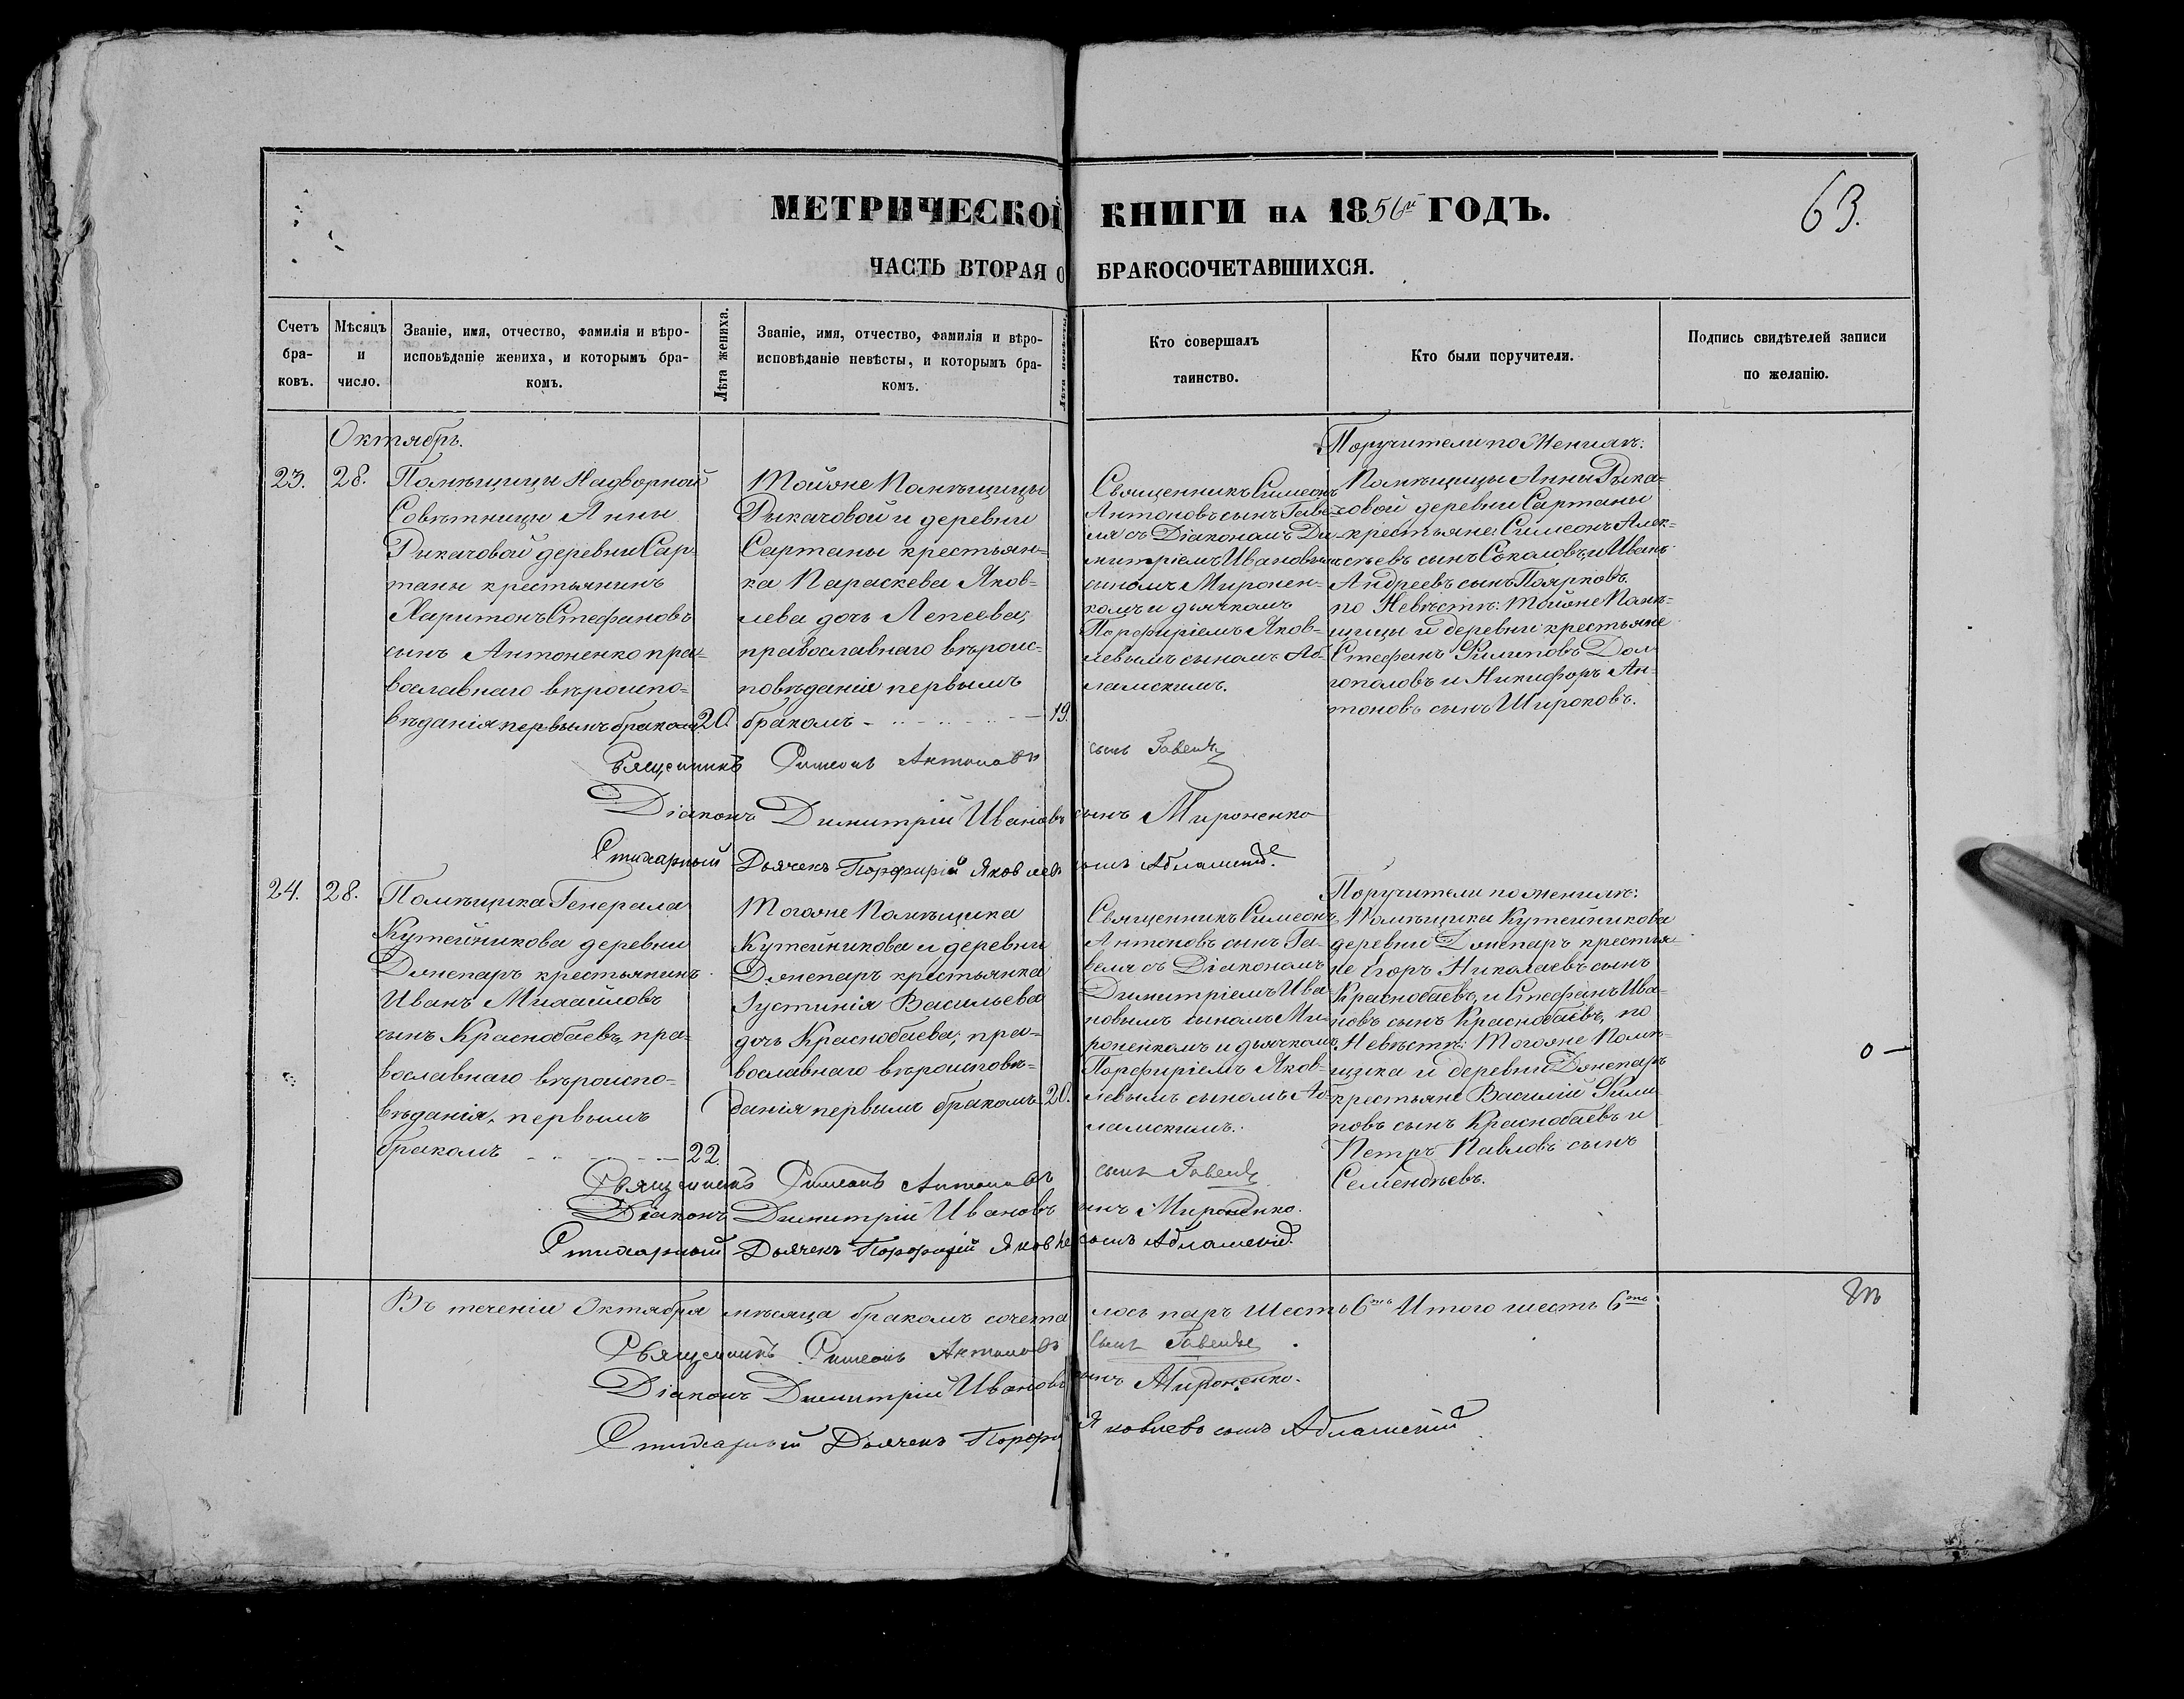 МЕТРИЧЕСКОЙ КНИГИ НА 1856й ГОДЪ.
63.
ЧАСТЬ ВТОРАЯ О БРАКОСОЧЕТАВШИХСЯ.
Счетъ
бра-
ковъ.
Мѣсяцъ
и
число.
Званіе, имя, отчество, фамилія и вѣро-
исповѣданіе жениха, и которымъ бра-
комъ.
Лѣта жениха.
Званіе, имя, отчество, фамилія и вѣро-
исповѣданіе невѣсты, и которымъ бра-
комъ.
Кто совершалъ
таинство.
Кто были поручители.
Подпись свидѣтелей записи
по желанію.
Октябрь.
23.
28.
Помѣщицы Надворной
Совѣтницы Анны
Рыкачовой деревни Сар-
таны крестьянинъ
Харитонъ Стефановъ
сынъ Антоненко пра-
вославнаго вѣроиспо-
вѣданія первымъ бракомъ
20.
Тойоже Помѣщицы
Рыкачовой и деревни
Сартаны крестьян-
ка Параскева Яков-
лева дочь Лепеева,
православнаго вѣроис-
повѣданія первымъ
бракомъ
19.
Священникъ Симеонъ
Антоновъ сынъ Гаве-
ля съ Діакономъ Ди-
митріемъ Ивановымъ
сыномъ Миронен-
комъ и дьячкомъ
Порфиріемъ Яков-
левымъ сыномъ Аб-
ламскимъ.
Поручители по Женихѣ:
Помѣщицы Анны Рыка-
човой деревни Сартаны
крестьяне: Симеонъ Алек-
сѣевъ сынъ Соколовъ, и Иванъ
Андреевъ сынъ Поярковъ.
по Невѣстѣ: тойоже Помѣ-
щицы и деревни крестьяне
Стефанъ Филиповъ Дол-
гополовъ и Никифоръ Ан-
тоновъ сынъ Широковъ.
Священникъ Симеонъ Антоновъ сынъ Гавеля
Діаконъ Димитрій Ивановъ сынъ Мироненко
Стихарный Дьячекъ Порфирій Яковлевъ сынъ Абламскій.
24.
28.
Помѣщика Генерала
Кутейникова деревни
Дянепаръ крестьянинъ
Иванъ Михайловъ
сынъ Краснобаевъ, пра-
вославнаго вѣроиспо-
вѣданія, первымъ
бракомъ
22.
Тогоже Помѣщика
Кутейникова и деревни
Дянепаръ крестьянка
Іустинія Васильева
дочь Краснобаева, пра-
вославнаго вѣроисповѣ-
данія первымъ бракомъ
20.
Священникъ Симеонъ
Антоновъ сынъ Га-
веля съ Діакономъ
Димитріемъ Ива-
новымъ сыномъ Ми-
роненкомъ и дьячкомъ
Порфиріемъ Яков-
левымъ сыномъ Аб-
ламскимъ.
Поручители по женихѣ:
Помѣщика Кутейникова
деревни Дянепаръ крестья-
не Егоръ Николаевъ сынъ
Краснобаевъ, и Стефанъ Ива-
новъ сынъ Краснобаевъ, по
Невѣстѣ: Тогоже Помѣ-
щика и деревни Дянепаръ
крестьяне Василій Фили-
повъ сынъ Краснобаевъ и
Петръ Павловъ сынъ
Семендѣевъ.
Священникъ Симеонъ Антоновъ сынъ Гавеля
Діаконъ Димитрій Ивановъ сынъ Мироненко.
Стихарный Дьячекъ Порфирій Яковлевъ сынъ Абламскій.
Въ теченіи Октября мѣсяца бракомъ сочеталось паръ Шесть 6ть Итого шесть 6ть
Священникъ Симеонъ Антоновъ сынъ Гавеля
Діаконъ Димитрій Ивановъ сынъ Мироненко.
Стихарный Дьячекъ Порфи Яковлевъ сынъ Абламскій